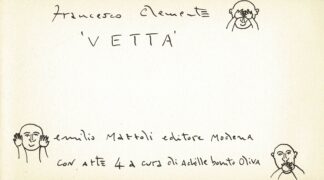 Francesco Clemente
'VETTA'
emilio Mazzoli editore Modena
con arte 4 a cura di Achille bonito Oliva